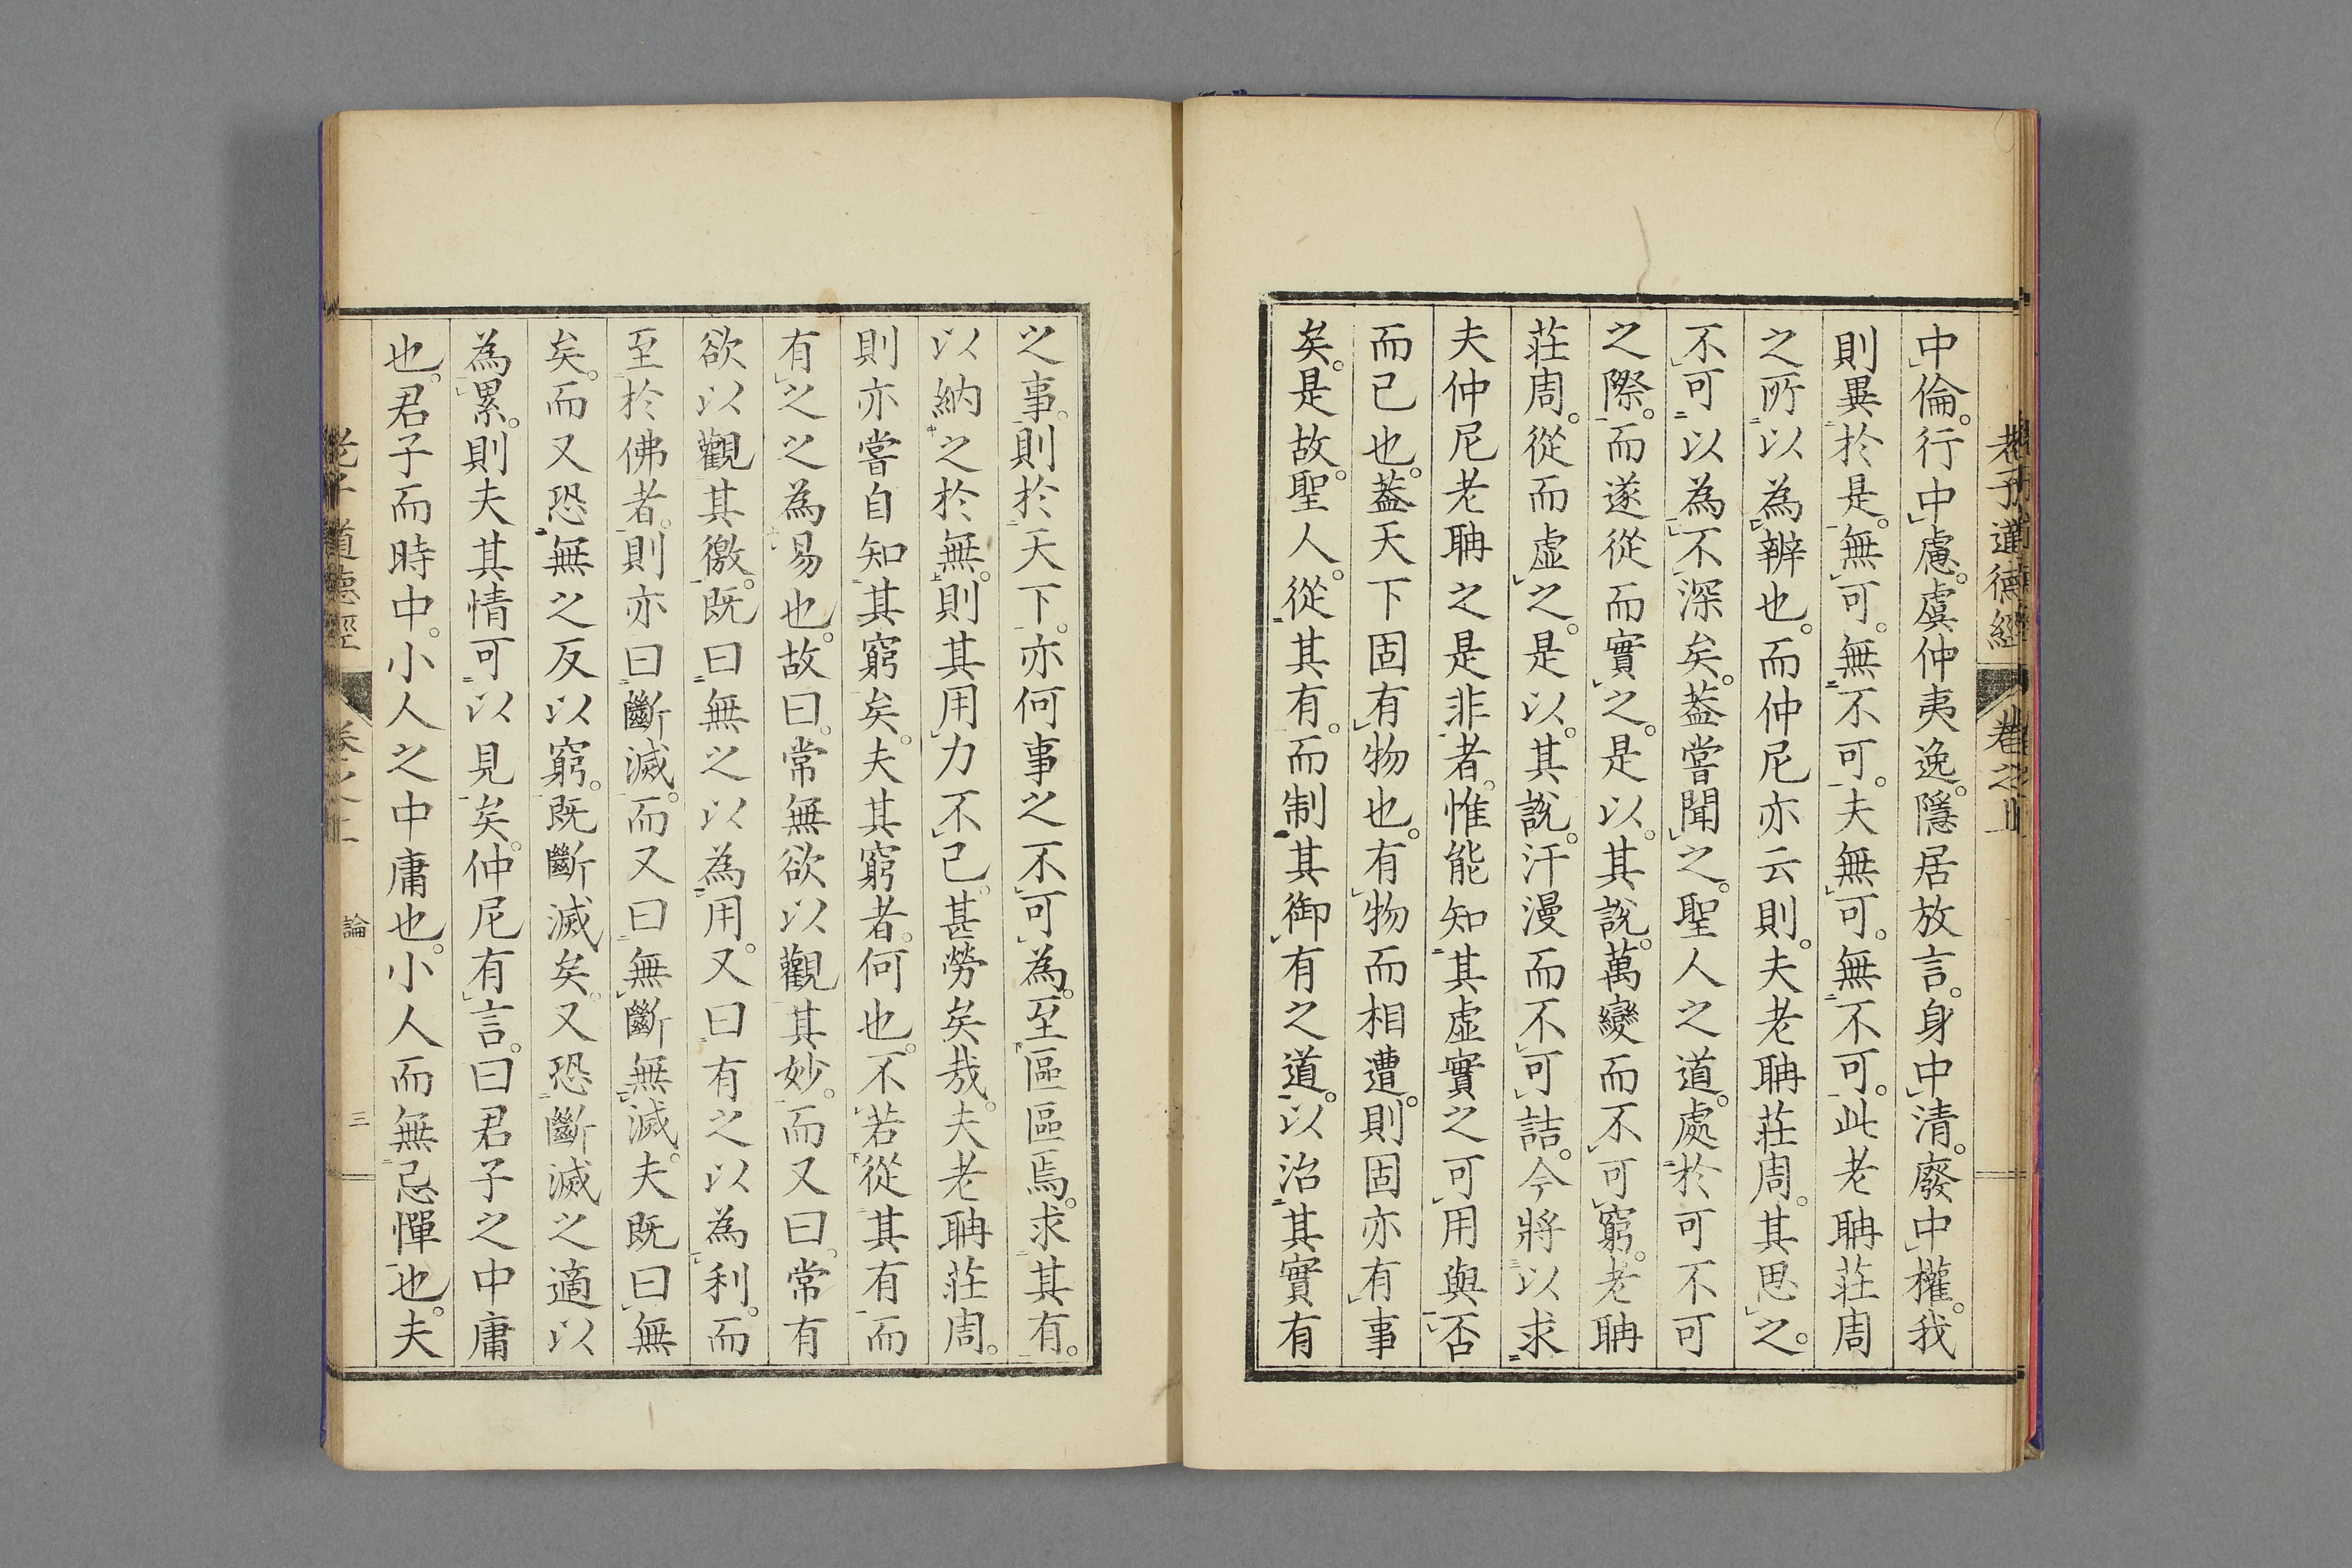 老子道德經 卷之上
中倫。行中慮。虞仲夷逸。隱居放言。身中清。廢中權。我
則異於是。無可。無不可。夫無可。無不可。此老聃莊周
之所以為辨也。而仲尼亦云則。夫老聃莊周。其思之。
不可以為不深矣。葢嘗聞之。聖人之道。處於可不可
之際。而遂從而實之。是以。其說。萬變而不可窮。老聃
莊周。從而虛之。是以。其說。汗漫而不可詰。今將以求
夫仲尼老聃之是非者。惟能知其虛實之可用與否
而已也。葢天下固有物也。有物而相遭。則固亦有事
矣。是故聖人。從其有。而制其御有之道。以治其實有
之事。則於天下。亦何事之不可為。至區區焉。求其有。
以納之於無。則其用力不已。甚勞矣哉。夫老聃莊周。
則亦嘗自知其窮矣。夫其窮者。何也。不若從其有而
有之之為易也。故曰。常無欲以觀其妙。而又曰。常有
欲以觀其徼。既曰無之以為用。又曰有之以為利。而
至於佛者。則亦曰斷滅。而又曰無斷無滅。夫既曰無
矣。而又恐無之反以窮。既斷滅矣。又恐斷滅之適以
為累。則夫其情可以見矣。仲尼有言。曰君子之中庸
也。君子而時中。小人之中庸也。小人而無忌憚也。夫
老子道德經 卷之上 論 三